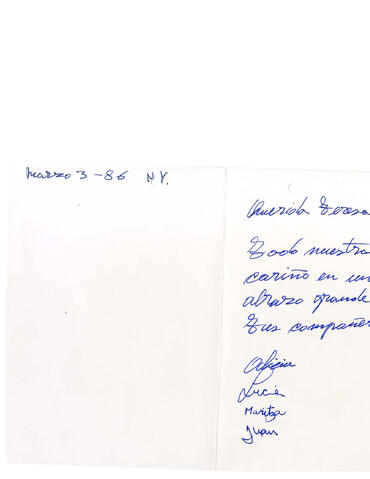 Marzo 3 - 86 NY.
Querida Teresa
Todo nuestro
cariño en un
abrazo grande
Tus compañer
Alicia
Lucia
Maritza
Juan